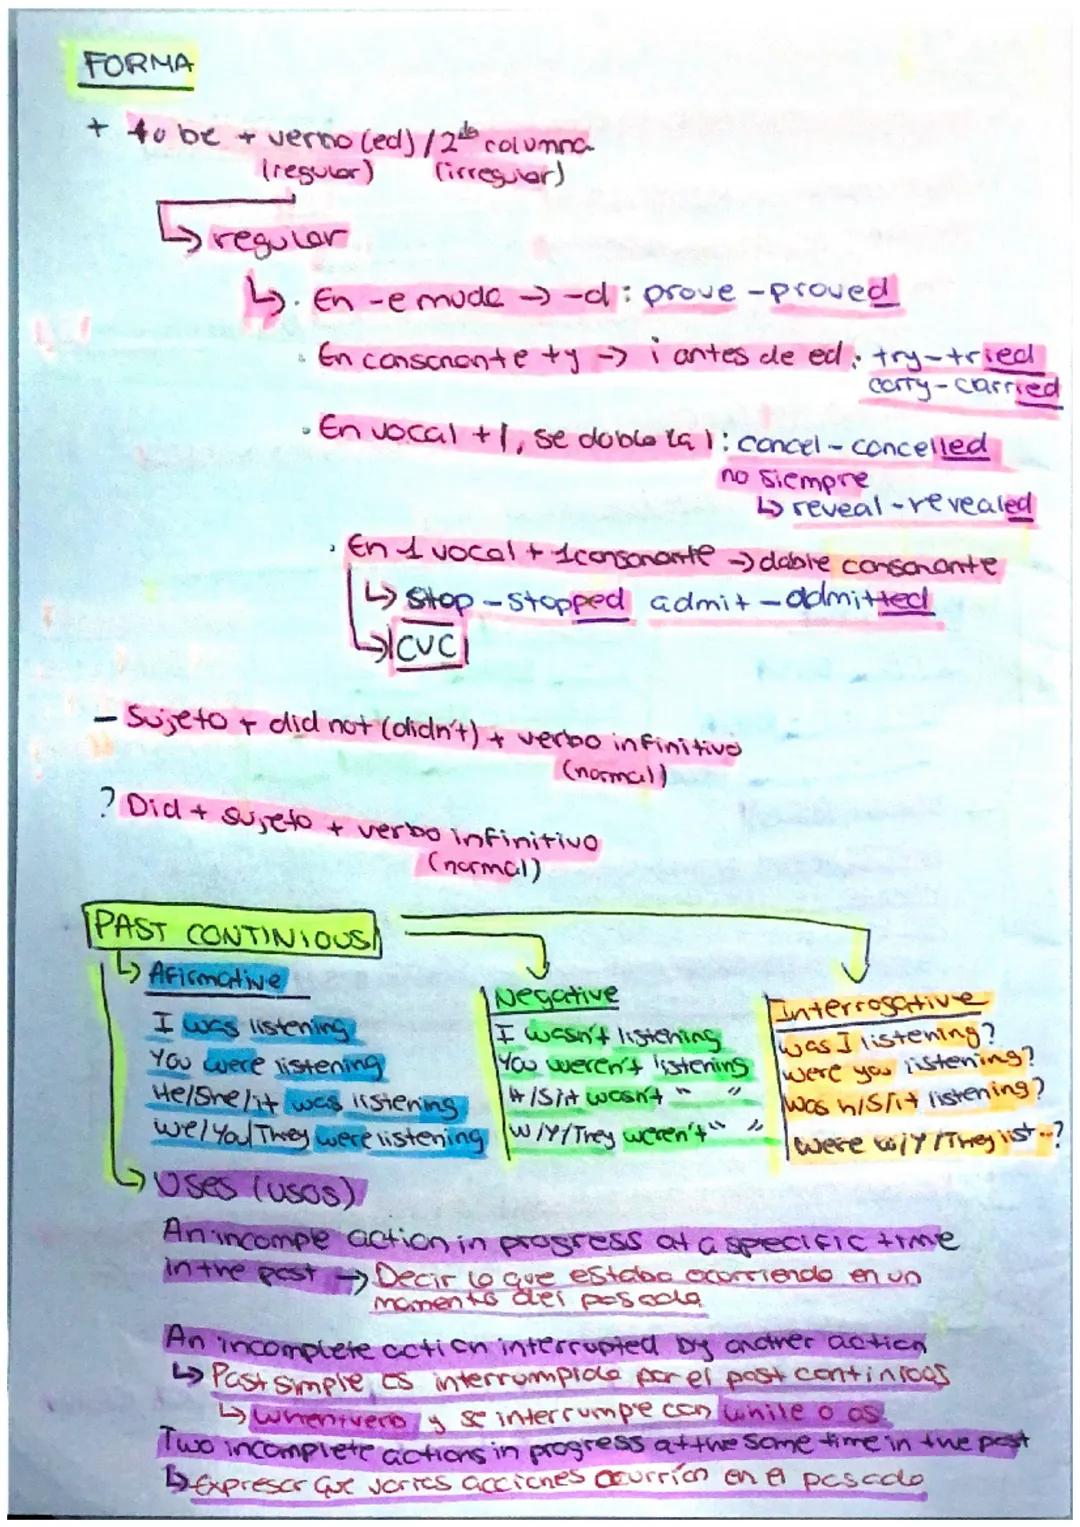 FORMA
+ to be + verbo (ed) / 2da columna
(regular) (irregular)
↳ regular
↳ · En -e muda → -d : prove - proved
· En consonante + y → i antes de ed : try - tried
carry - carried
· En vocal + l, se dobla la l : cancel - cancelled
no siempre
↳ reveal - revealed
· En 1 vocal + 1 consonante → doble consonante
↳ stop - stopped admit - admitted
→ CVC
- Sujeto + did not (didn't) + verbo infinitivo
(normal)
? Did + sujeto + verbo infinitivo
(normal)
PAST CONTINIOUS
↳ Afirmative
I was listening
You were listening
He/She/it was listening
We/You/They were listening
Negative
I wasn't listening
You weren't listening
H/S/it wasn't " "
W/Y/They weren't " "
Interrogative
Was I listening?
Were you listening?
Was h/S/it listening?
Were w/Y/They list...?
↳ Uses (usos)
An incomple action in progress at a specific time
in the past → Decir lo que estaba ocorriendo en un
momento del pasado
An incomplete action interrupted by another action
↳ Past simple es interrumpido por el past continioos
↳ when+verb y se interrumpe con while o as
Two incomplete actions in progress at the same time in the past
↳ Expresar que varias acciones ocurrían en el pasado